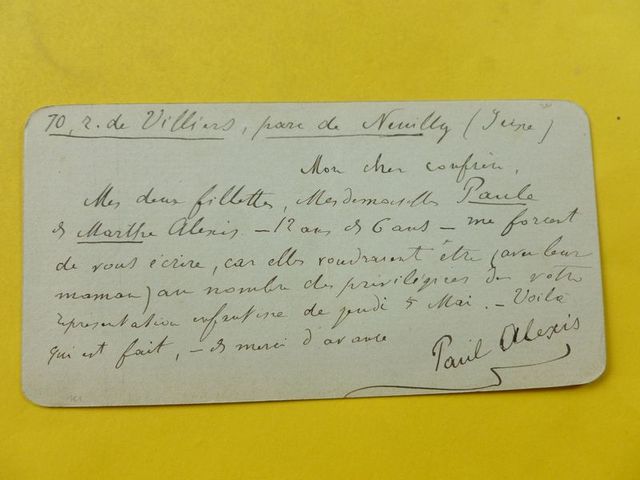 70, r. de Villiers, parc de Neuilly (Seine)
Mon cher confrère,
Mes deux fillettes, Mesdemoiselles Paule
et Marthe Alexis — 12 ans et 6 ans — me forcent
de vous écrire, car elles voudraient être (avec leur
maman) au nombre des privilégiées de votre
représentation enfantine de jeudi 5 Mai. — Voilà
qui est fait, — et merci d'avance
Paul Alexis